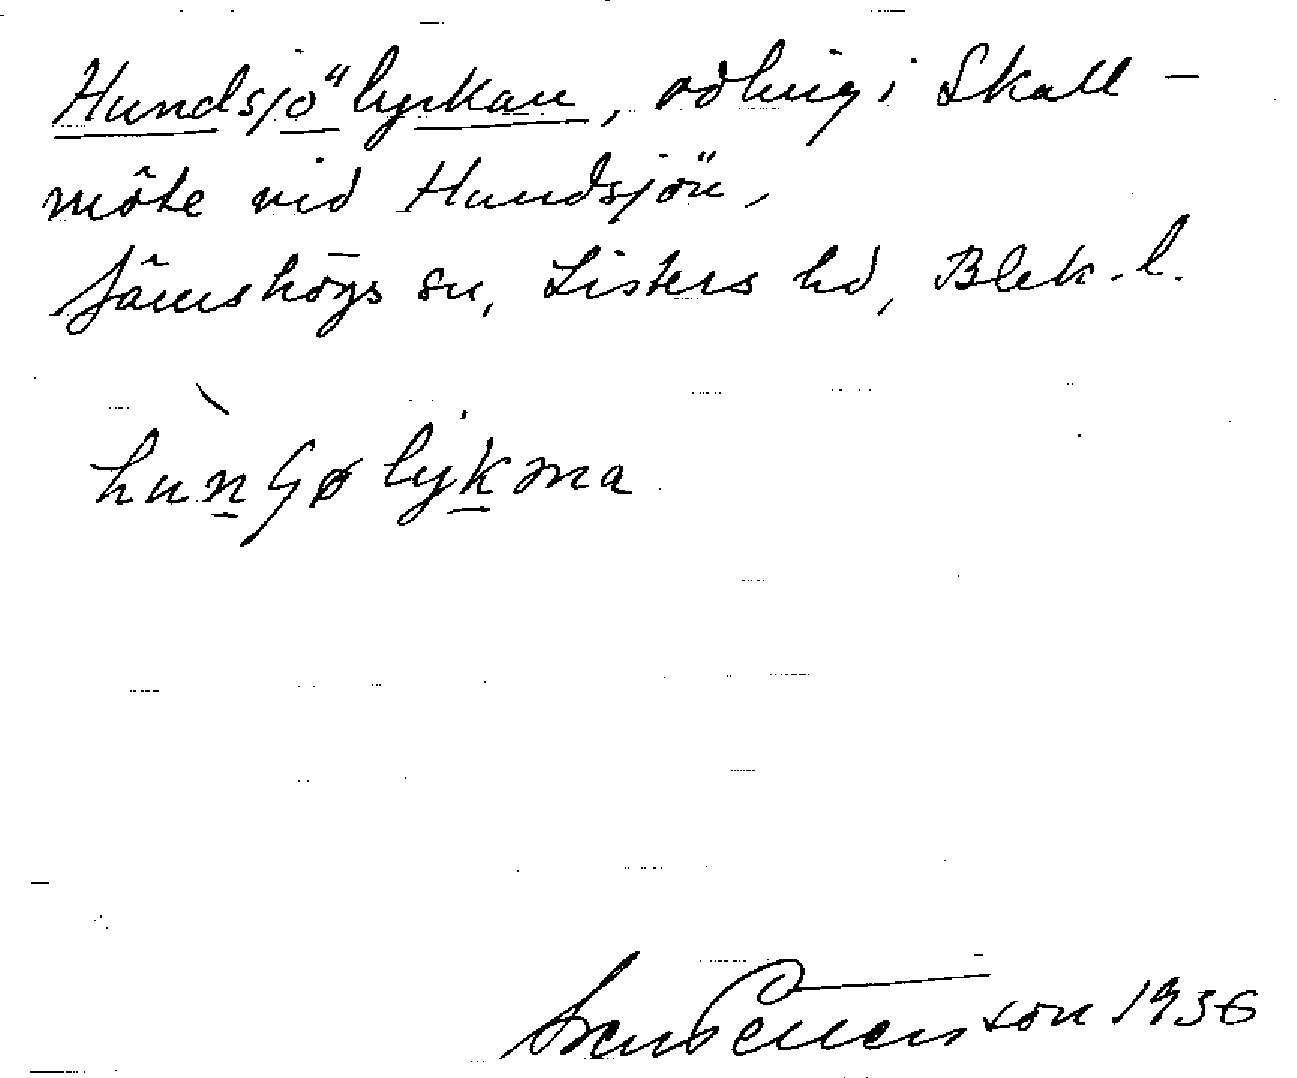 Hundsjölyckan, odling i Skall-
möte vid Hundsjön,
Jämshögs sn, Listers hd, Blek. l.
Sven Pettersson 1936